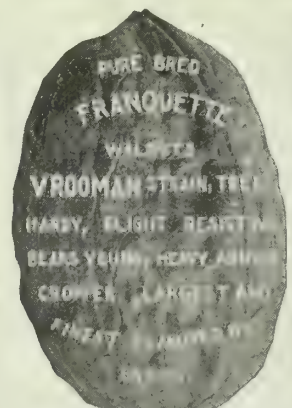 PURE BRED
FRANQUETTE
WALNUTS
VROOMAN STRAIN, TREE
HARDY, BLIGHT RESISTING
BEARS YOUNG, HEAVY ANNUAL
CROPPER, LARGEST AND
FINEST